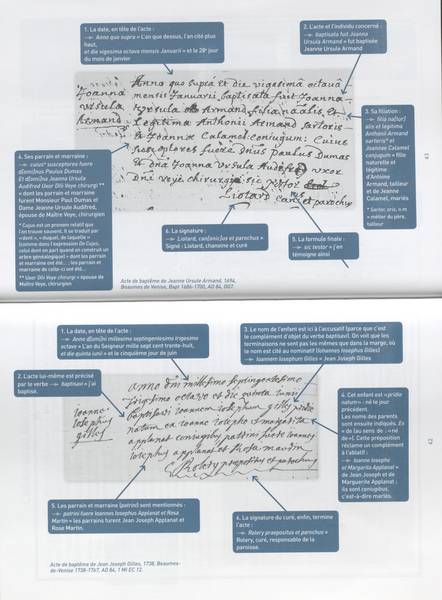 1. La date, en tête de l'acte :
→ Anno quo supra « L'an que dessus, l'an cité plus haut,
et die vigesima octava mensis Januarii » et le 28e jour
du mois de janvier
2. L'acte et l'individu concerné :
→ baptisata fuit Joanna
Ursula Armand « fut baptisée
Jeanne Ursule Armand
Joanna
Ursula
Armand
Anno quo supra et die vigesimâ octavâ
mensis Januarii baptisata fuit Joanna
Ursula Armand filia natalis et
Legitima Anthonii Armand sartoris
et Joannæ Calamel conjugum : Cuius
susceptores fuere Dnus Paulus Dumas
et dna Joanna Ursula Audifred uxor
Dni Veye chirurgi sic testor
Liotard Can. et parochus
3. Sa filiation :
→ filia na[tur]
alis et legitima
Anthonii Armand
sartoris* et
Joannae Calamel
conjugum « fille
naturelle et
légitime
d'Antoine
Armand, tailleur
et de Jeanne
Calamel, mariés
* Sartor, oris, n.m
= métier du père,
tailleur
4. Ses parrain et marraine :
→ cuius* susceptores fuere
d[omi]nus Paulus Dumas
Et d[omi]na Joanna Ursula
Audifred Uxor D[omi]ni Veye chirurgi **
« dont les parrain et marraine
furent Monsieur Paul Dumas et
Dame Jeanne Ursule Audifred,
épouse de Maître Veye, chirurgien
* Cujus est un pronom relatif que
l'on trouve souvent. Il se traduit par
« dont », « duquel, de laquelle »
(comme dans l'expression De Cujus,
celui dont on part quand on construit un
arbre généalogique) = dont les parrain
et marraine ont été... : les parrain et
marraine de celle-ci ont été...
** Uxor D[omi]ni Veye chirurgi = épouse de
Maître Veye, chirurgien
6. La signature :
→ Liotard, can[onic]us et parochus »
Signé : Liotard, chanoine et curé
5. La formule finale :
→ sic testor « j'en
témoigne ainsi
Acte de baptême de Jeanne Ursule Armand, 1694,
Beaumes de Venise, Bapt 1686-1700, AD 84, GG7.
41
1. La date, en tête de l'acte :
→ Anno d[omi]ni millesimo septingentesimo trigesimo
octavo « L'an du Seigneur mille sept cent trente-huit,
et die quinta iunii » et le cinquième jour de juin
3. Le nom de l'enfant est ici à l'accusatif (parce que c'est
le complément d'objet du verbe baptisavi). On voit que les
terminaisons ne sont pas les mêmes que dans la marge, où
le nom est cité au nominatif (Iohannes Iosephus Gilles)
→ Ioannem Iosephum Gilles « Jean Joseph Gilles
2. L'acte lui-même est précisé
par le verbe → baptisavi « j'ai
baptisé.
Ioannes
Iosephus
gilles
anno dni millesimo septingentesimo
trigesimo octavo et die quinta iunii
baptisavi ioannem iosephum gilles pridie
natum ex ioanne iosepho et margarita
applanat conjugibus patrini fuere ioannes
iosephus applanat et Rosa martin
Rolery præpositus et parochus
4. Cet enfant est « pridie
natum » : né le jour
précédent.
Les noms des parents
sont ensuite indiqués. Ex
= de (au sens de : « né
de »). Cette préposition
réclame un complément
à l'ablatif :
→ Ioanne Iosepho
et Margarita Applanat »
de Jean Joseph et de
Marguerite Applanat ;
ils sont conjugibus,
c'est-à-dire mariés.
5. Les parrain et marraine (patrini) sont mentionnés :
→ patrini fuere Ioannes Iosephus Applanat et Rosa
Martin « les parrains furent Jean Joseph Applanat et
Rose Martin.
6. La signature du curé, enfin, termine
l'acte :
→ Rolery praepositus et parochus »
Rolery, curé, responsable de la
paroisse.
Acte de baptême de Jean Joseph Gilles, 1738, Beaumes-
de-Venise 1738-1767, AD 84, 1 MI EC 12.
42